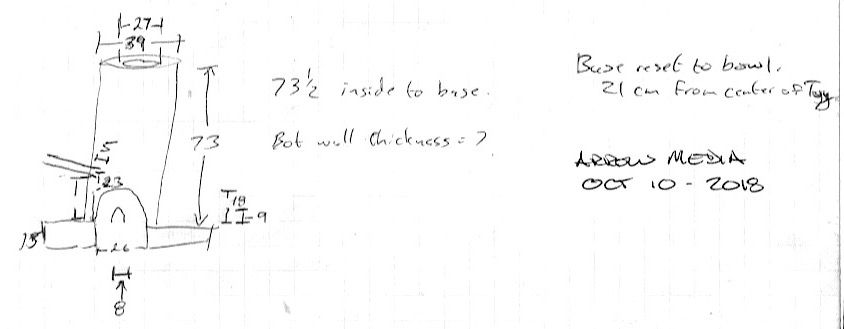 27
39
73½ inside to base.
Base reset to bowl.
21 cm from center of Tuy
73
Bot wall thickness = ?
ARROW MEDIA
OCT 10 - 2018
23
18
9
15
26
8